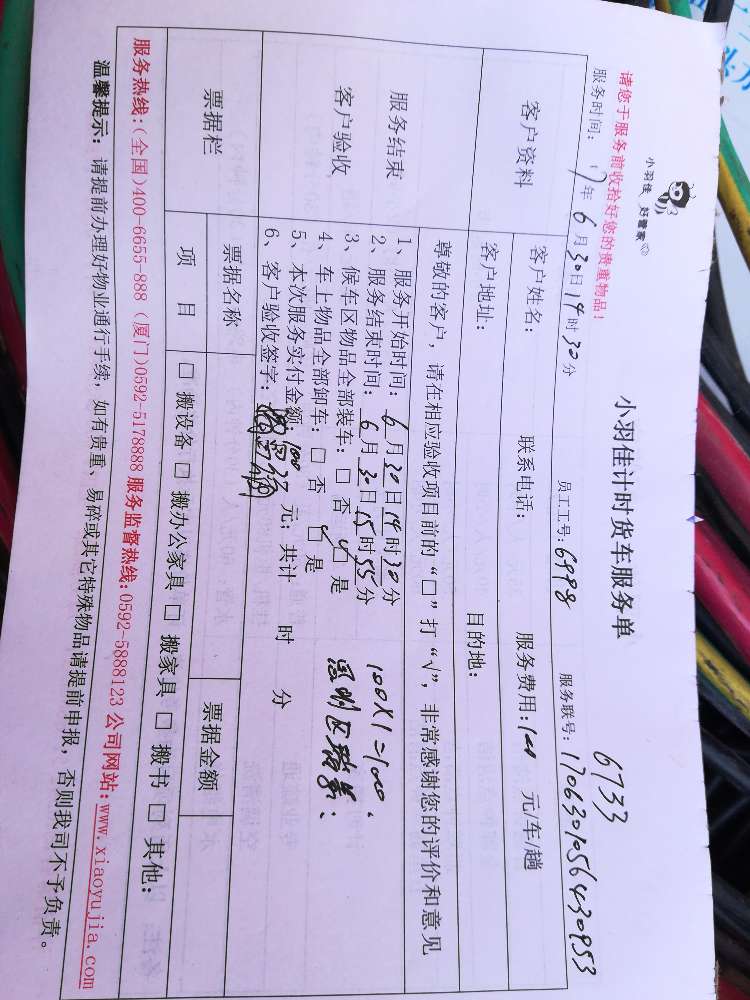 小羽佳 好管家
小羽佳计时货车服务单
6733
请您于服务前收拾好您的贵重物品!
员工工号: 6998
服务联号: 1706301056430953
服务时间: 17年 6月 30日 14时 30分
客户资料
客户姓名: 联系电话: 服务费用: 100 元/车/趟
客户地址: 目的地:
尊敬的客户, 请在相应验收项目前的“□”打“√”, 非常感谢您的评价和意见
服务结束
客户验收
1、服务开始时间: 6月30日14时30分
2、服务结束时间: 6月30日15时55分
3、候车区物品全部装车: □ 否 □ 是
4、车上物品全部卸车: □ 否 □ 是
5、本次服务实付金额: 100 元; 共计 时 分
6、客户验收签字:
100X1=100.
票据栏
票据名称
票据金额
项 目
□ 搬设备 □ 搬办公家具 □ 搬家具 □ 搬书 □ 其他:
服务热线:(全国)400-6655-888 (厦门)0592-5178888 服务监督热线:0592-5888123 公司网站:www.xiaoyujia.com
温馨提示: 请提前办理好物业通行手续, 如有贵重、易碎或其它特殊物品请提前申报, 否则我司不予负责。